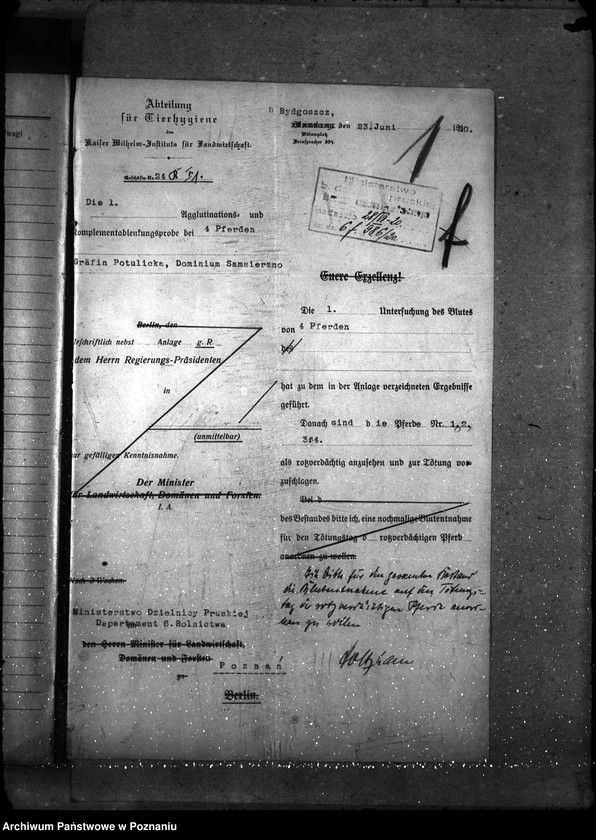 Abteilung
für Tierhygiene
des
Kaiser Wilhelm-Instituts für Landwirtschaft.
Geschäfts-Nr. 24
Die 1.
Agglutinations- und
Komplementablenkungsprobe bei 4 Pferden
Gräfin Potulicka, Dominium Samsierzno
Berlin, den
Urschriftlich nebst Anlage g. R.
dem Herrn Regierungs-Präsidenten
in
(unmittelbar)
zur gefälligen Kenntnisnahme.
Der Minister
für Landwirtschaft, Domänen und Forsten.
I. A.
Nach 3 Wochen.
Ministerstwo Dzielnicy Pruskiej
Departament 6. Rolnictwa
den Herrn Minister für Landwirtschaft,
Domänen und Forsten
Poznań
zu
Berlin.
Bydgoszcz,
den 23. Juni 1920.
Fernsprecher
1
Ministerstwo
Euere Exzellenz!
Die 1. Untersuchung des Blutes
von 4 Pferden
des
hat zu dem in der Anlage verzeichneten Ergebnisse
geführt.
Danach sind die Pferde Nr. 1, 2,
3 u 4.
als rotzverdächtig anzusehen und zur Tötung vor
zuschlagen.
Bei d
des Bestandes bitte ich, eine nochmalige Blutentnahme
für den Tötungstag d rotzverdächtigen Pferd
anordnen zu wollen.
Ich bitte für den gesamten Bestand
die Blutentnahme auf den Tötungs-
tag der rotzverdächtigen Pferde anord-
nen zu wollen
Archiwum Państwowe w Poznaniu